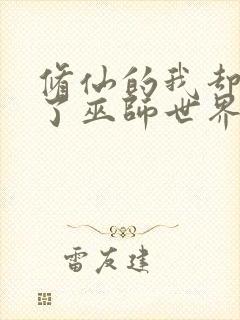 修仙的我却
了巫師世界
雷友建